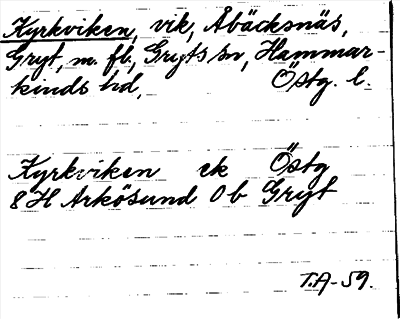 Kyrkviken, vik, Åbäcksnäs,
Gryt, m. fl., Gryts sn, Hammar-
kinds hd, Östg. l.
Kyrkviken ek Östg
8 H Arkösund 0 b Gryt
T.A-59.